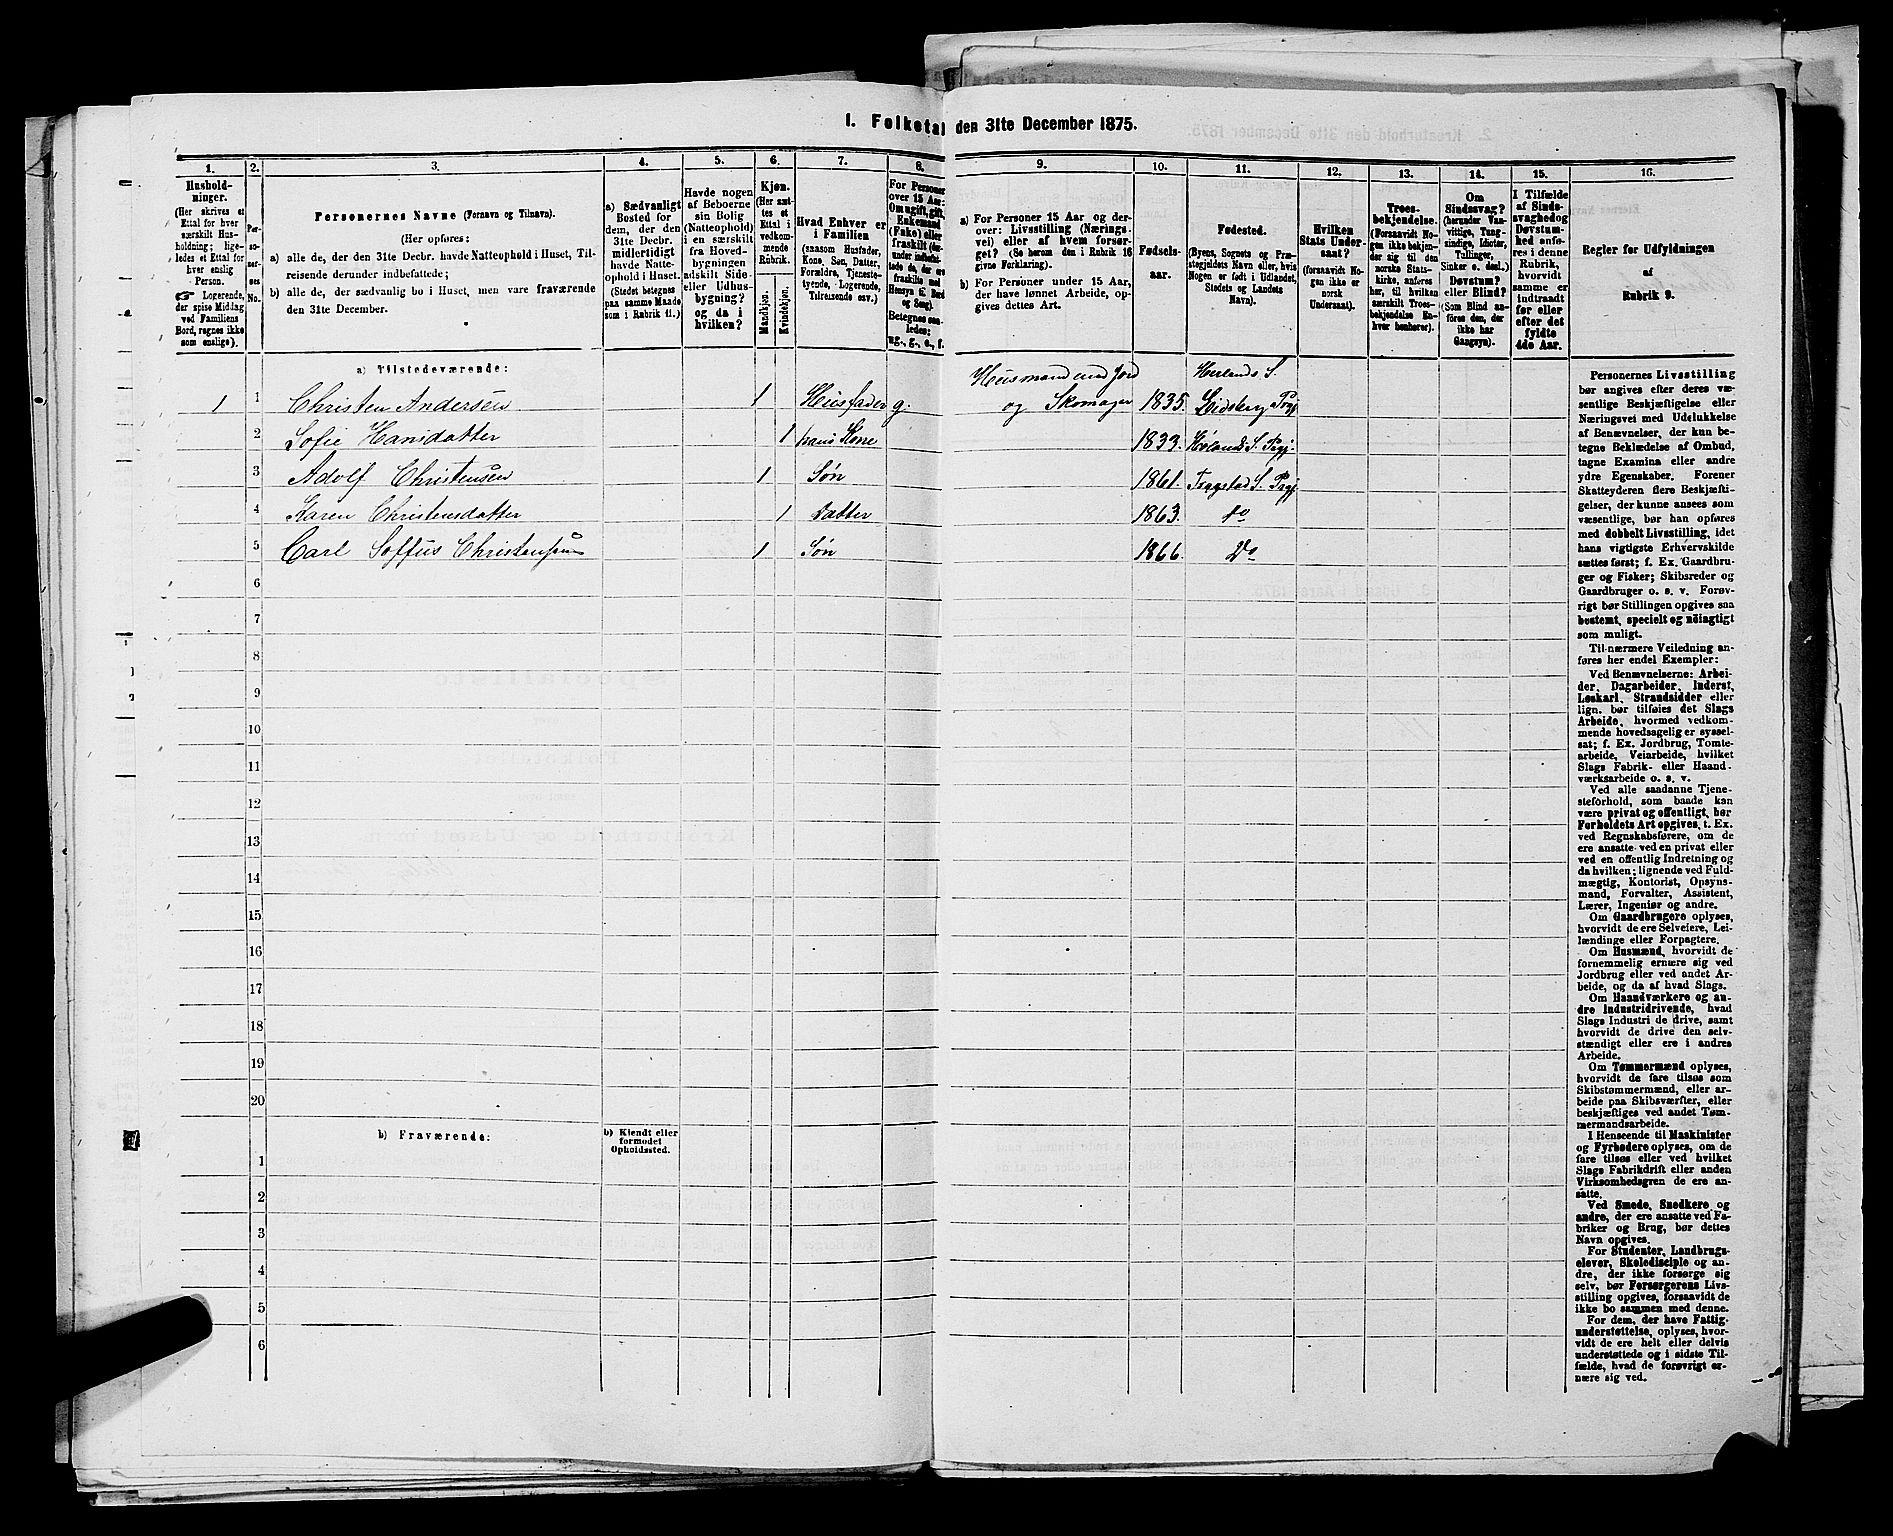 1. Folketal den 31te December 1875.
1.
Hushold-
ninger.
(Her skrives et
Ettal for hver
særskilt Hus-
holdning; lige-
ledes et Ettal for
hver enslig
Person.
☞ Logerende,
der spise Middag
ved Familiens
Bord, regnes ikke
som enslige).
2.
Per-
so-
ner-
nes
No.
3.
Personernes Navne (Fornavn og Tilnavn).
(Her opføres:
a) alle de, der den 31te Decbr. havde Natteophold i Huset, Til-
reisende derunder indbefattede;
b) alle de, der sædvanlig bo i Huset, men vare fraværende
den 31te December.
4.
a) Sædvanligt
Bosted for
dem, der den
31te Decbr.
midlertidigt
havde Natte-
ophold i Huset.
(Stedet betegnes
paa samme Maade
som i Rubrik 11.)
5.
Havde nogen
af Beboerne
sin Bolig
(Natteophold)
i en særskilt
fra Hoved-
bygningen
adskilt Side-
eller Udhus-
bygning?
og da i
hvilken?
6.
Kjøn.
(Her sæt-
tes et
Ettal i
vedkom-
mende
Rubrik.
Mandkjøn.
Kvindekjøn.
7.
Hvad Enhver er
i Familien
(saasom Husfader,
Kone, Søn, Datter,
Forældre, Tjeneste-
tyende, Logerende,
Tilreisende osv.)
8.
For Personer
over 15 Aar:
Om ugift, gift,
Enkemand
(Enke) eller
fraskilt
Betegnes saa-
ledes:
ug., g., e., f.
9.
a) For Personer 15 Aar og der-
over: Livsstilling (Nærings-
vei) eller af hvem forsør-
get? (Se herom den i Rubrik 16
givne Forklaring).
b) For Personer under 15 Aar,
der have lønnet Arbeide, op-
gives dettes Art.
10.
Fødsels-
aar.
11.
Fødested.
(Byens, Sognets og Præ-
stegjeldets Navn eller, hvis
Nogen er født i Udlandet,
Stedets og Landets
Navn).
12.
Hvilken
Stats Under-
saat?
(forsaavidt No-
gen ikke er
norsk
Undersaat).
13.
Troes-
bekjendelse.
(Forsaavidt No-
gen ikke bekjen-
der sig til den
norske Stats-
kirke, anføres
her, til hvilken
særskilt Troes-
bekjendelse En-
hver henhører).
14.
Om
Sindssvag?
(herunder Van-
vittige, Tung-
sindige, Idioter,
Tullinger,
Sinker o. desl.)
Døvstum?
eller Blind?
(Som Blind an-
føres den, der
ikke har
Gangsyn).
15.
I Tilfælde
af Sinds-
svaghed og
Døvstum-
hed anfø-
res i denne
Rubrik,
hvorvidt
samme er
indtraadt
før eller
efter det
fyldte
4de Aar.
16.
Regler for Udfyldningen
af
Rubrik 9.
a) Tilstedeværende:
Husmand med Jord Herlands S.
1 1 Christen Andersen 1 Husfader g. og Skomager 1835. Eidsberg Prgj.
2 Sofie Hansdatter 1 hans Kone 1833. Hølands S. Prgj.
3 Adolf Christensen 1 Søn 1861. Trygstad S. Prgj.
4 Karen Christensdatter 1 Datter 1863. do
5 Carl Soffus Christensen 1 Søn 1866. Do
6
7
8
9
10
11
12
13
14
15
16
17
18
19
20
b) Fraværende:
b) Kjendt eller
formodet
Opholdssted.
1
2
3
4
5
6
Personernes Livsstilling
bør angives efter deres væ-
sentlige Beskjæftigelse eller
Næringsvei med Udelukkelse
af Benævnelser, der kun be-
tegne Beklædelse af Ombud,
tagne Examina eller andre
ydre Egenskaber. Forener
Skatteyderen flere Beskjæfti-
gelser, der kunne ansees som
væsentlige, bør han opføres
med dobbelt Livsstilling, idet
hans vigtigste Erhvervskilde
sættes først; f. Ex. Gaardbru-
ger og Fisker; Skibsreder og
Gaardbruger o. s. v. Forøv-
rigt bør Stillingen opgives saa
bestemt, specielt og nöiagtigt
som muligt.
Til nærmere Veiledning an-
føres her endel Exempler:
Ved Benævnelserne: Arbei-
der, Dagarbeider, Inderst,
Løskarl, Strandsidder eller
lign. bør tilføies det Slags
Arbeide, hvormed vedkom-
mende hovedsagelig er syssel-
sat; f. Ex. Jordbrug, Tomte-
arbeide, Veiarbeide, hvilket
Slags Fabrik- eller Haand-
værksarbeide o. s. v.
Ved alle saadanne Tjene-
steforhold, som baade kan
være privat og offentligt, bør
Forholdets Art opgives, t. Ex.
ved Regnskabsførere, om de
ere ansatte ved en privat eller
ved en offentlig Indretning og
da hvilken; lignende ved Fuld-
mægtig, Kontorist, Opsyns-
mand, Forvalter, Assistent,
Lærer, Ingeniør og andre.
Om Gaardbrugere oplyses,
hvorvidt de ere Selveiere, Lei-
lændinge eller Forpagtere.
Om Husmænd, hvorvidt de
fornemmelig ernære sig ved
Jordbrug eller ved andet Ar-
beide, og da af hvad Slags.
Om Haandværkere og an-
dre Industridrivende, hvad
Slags Industri de drive, samt
hvorvidt de drive den selv-
stændigt eller ere i andres
Arbeide.
Om Tømmermænd oplyses,
hvorvidt de fare tilsøs som
Skibstømmermænd, eller ar-
beide paa Skibsværfter, eller
beskjæftiges ved andet Tøm-
mermandsarbeide.
I Henseende til Maskinister
og Fyrbødere oplyses, om de
fare tilsøs eller ved hvilket
Slags Fabrikdrift eller anden
Virksomhedsgren de ere an-
satte.
Ved Smede, Snedkere og
andre, der ere ansatte ved Fa-
briker og Brug, bør dettes
Navn opgives.
For Studenter, Landbrugs-
elever, Skoledisciple og an-
dre, der ikke forsørge sig
selv, bør Forsørgerens Livs-
stilling opgives, forsaavidt de
ikke bo sammen med denne.
For dem, der have Fattig-
understøttelse, oplyses, hvor-
vidt de ere helt eller delvis
understøttede og i sidste Til-
fælde, hvad de forøvrigt er-
nære sig ved.